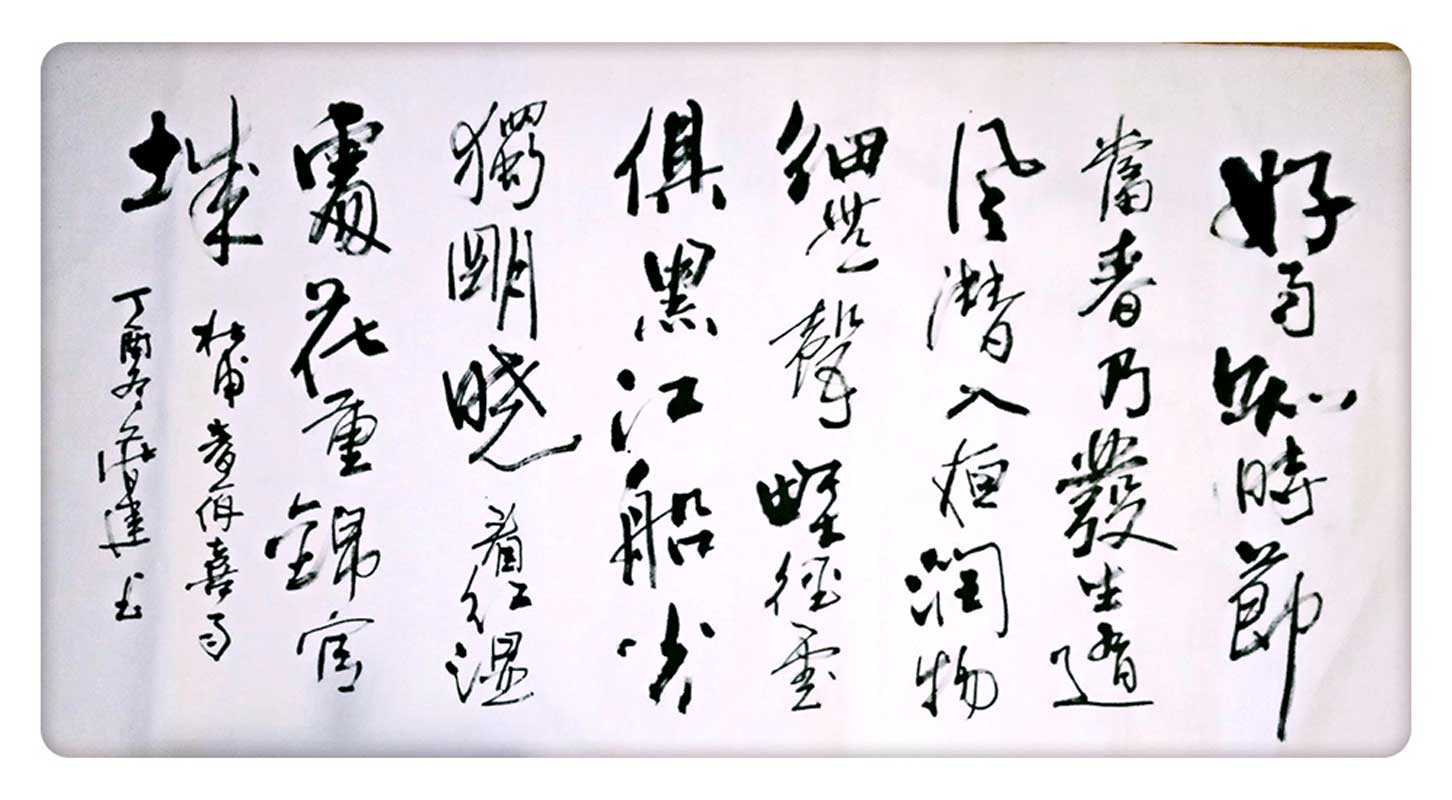 好雨知時節
當春乃發生随
風潜入夜潤物
細無聲野徑雲
俱黑江船火
獨明曉看红湿
處花重錦官
城 杜甫春夜喜雨
丁酉冬建书